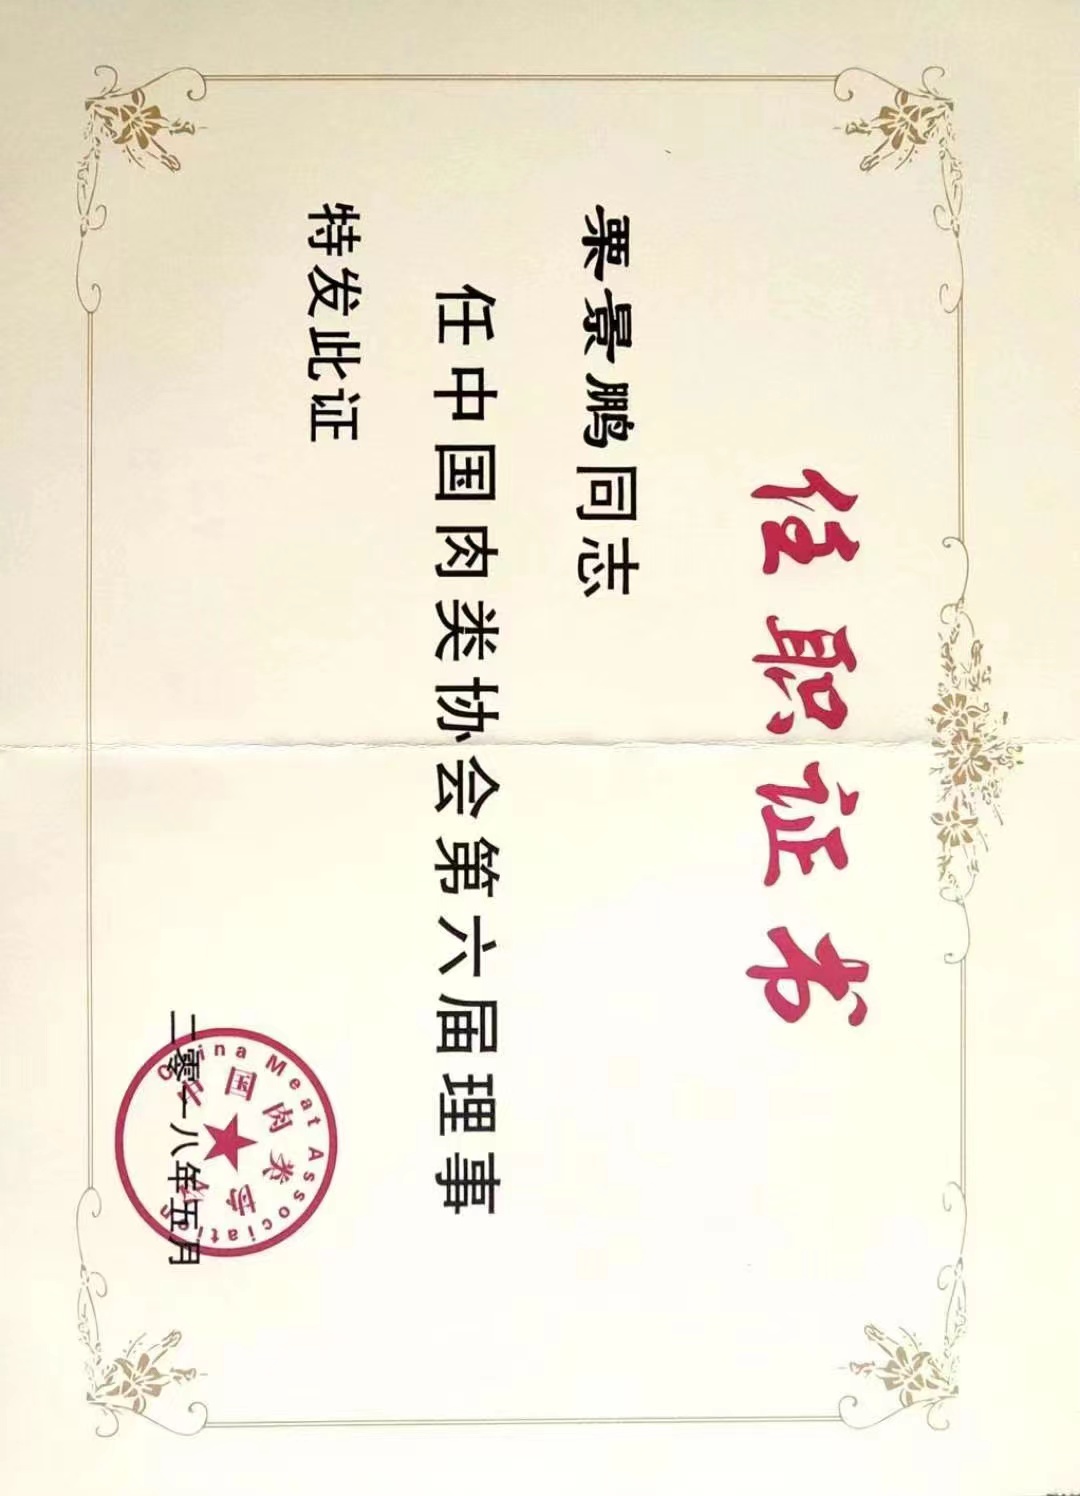 任职证书
栗景鹏同志
任中国肉类协会第六届理事
特发此证
二零一八年五月
中国肉类协会
China Meat Association